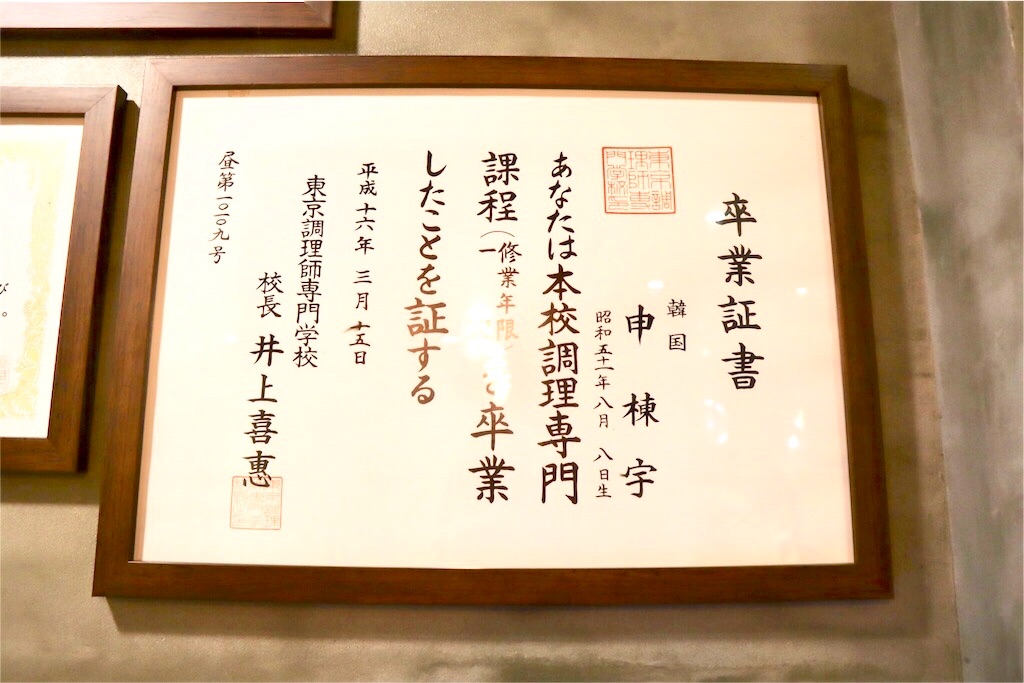 卒業証書
韓国
申棟宇
昭和五十一年八月八日生
東京調理師専門学校
あなたは本校調理専門
課程(修業年限
一
を卒業
したことを証する
平成十六年三月十五日
東京調理師専門学校
校長 井上喜惠
昼第一二〇九号
び
。